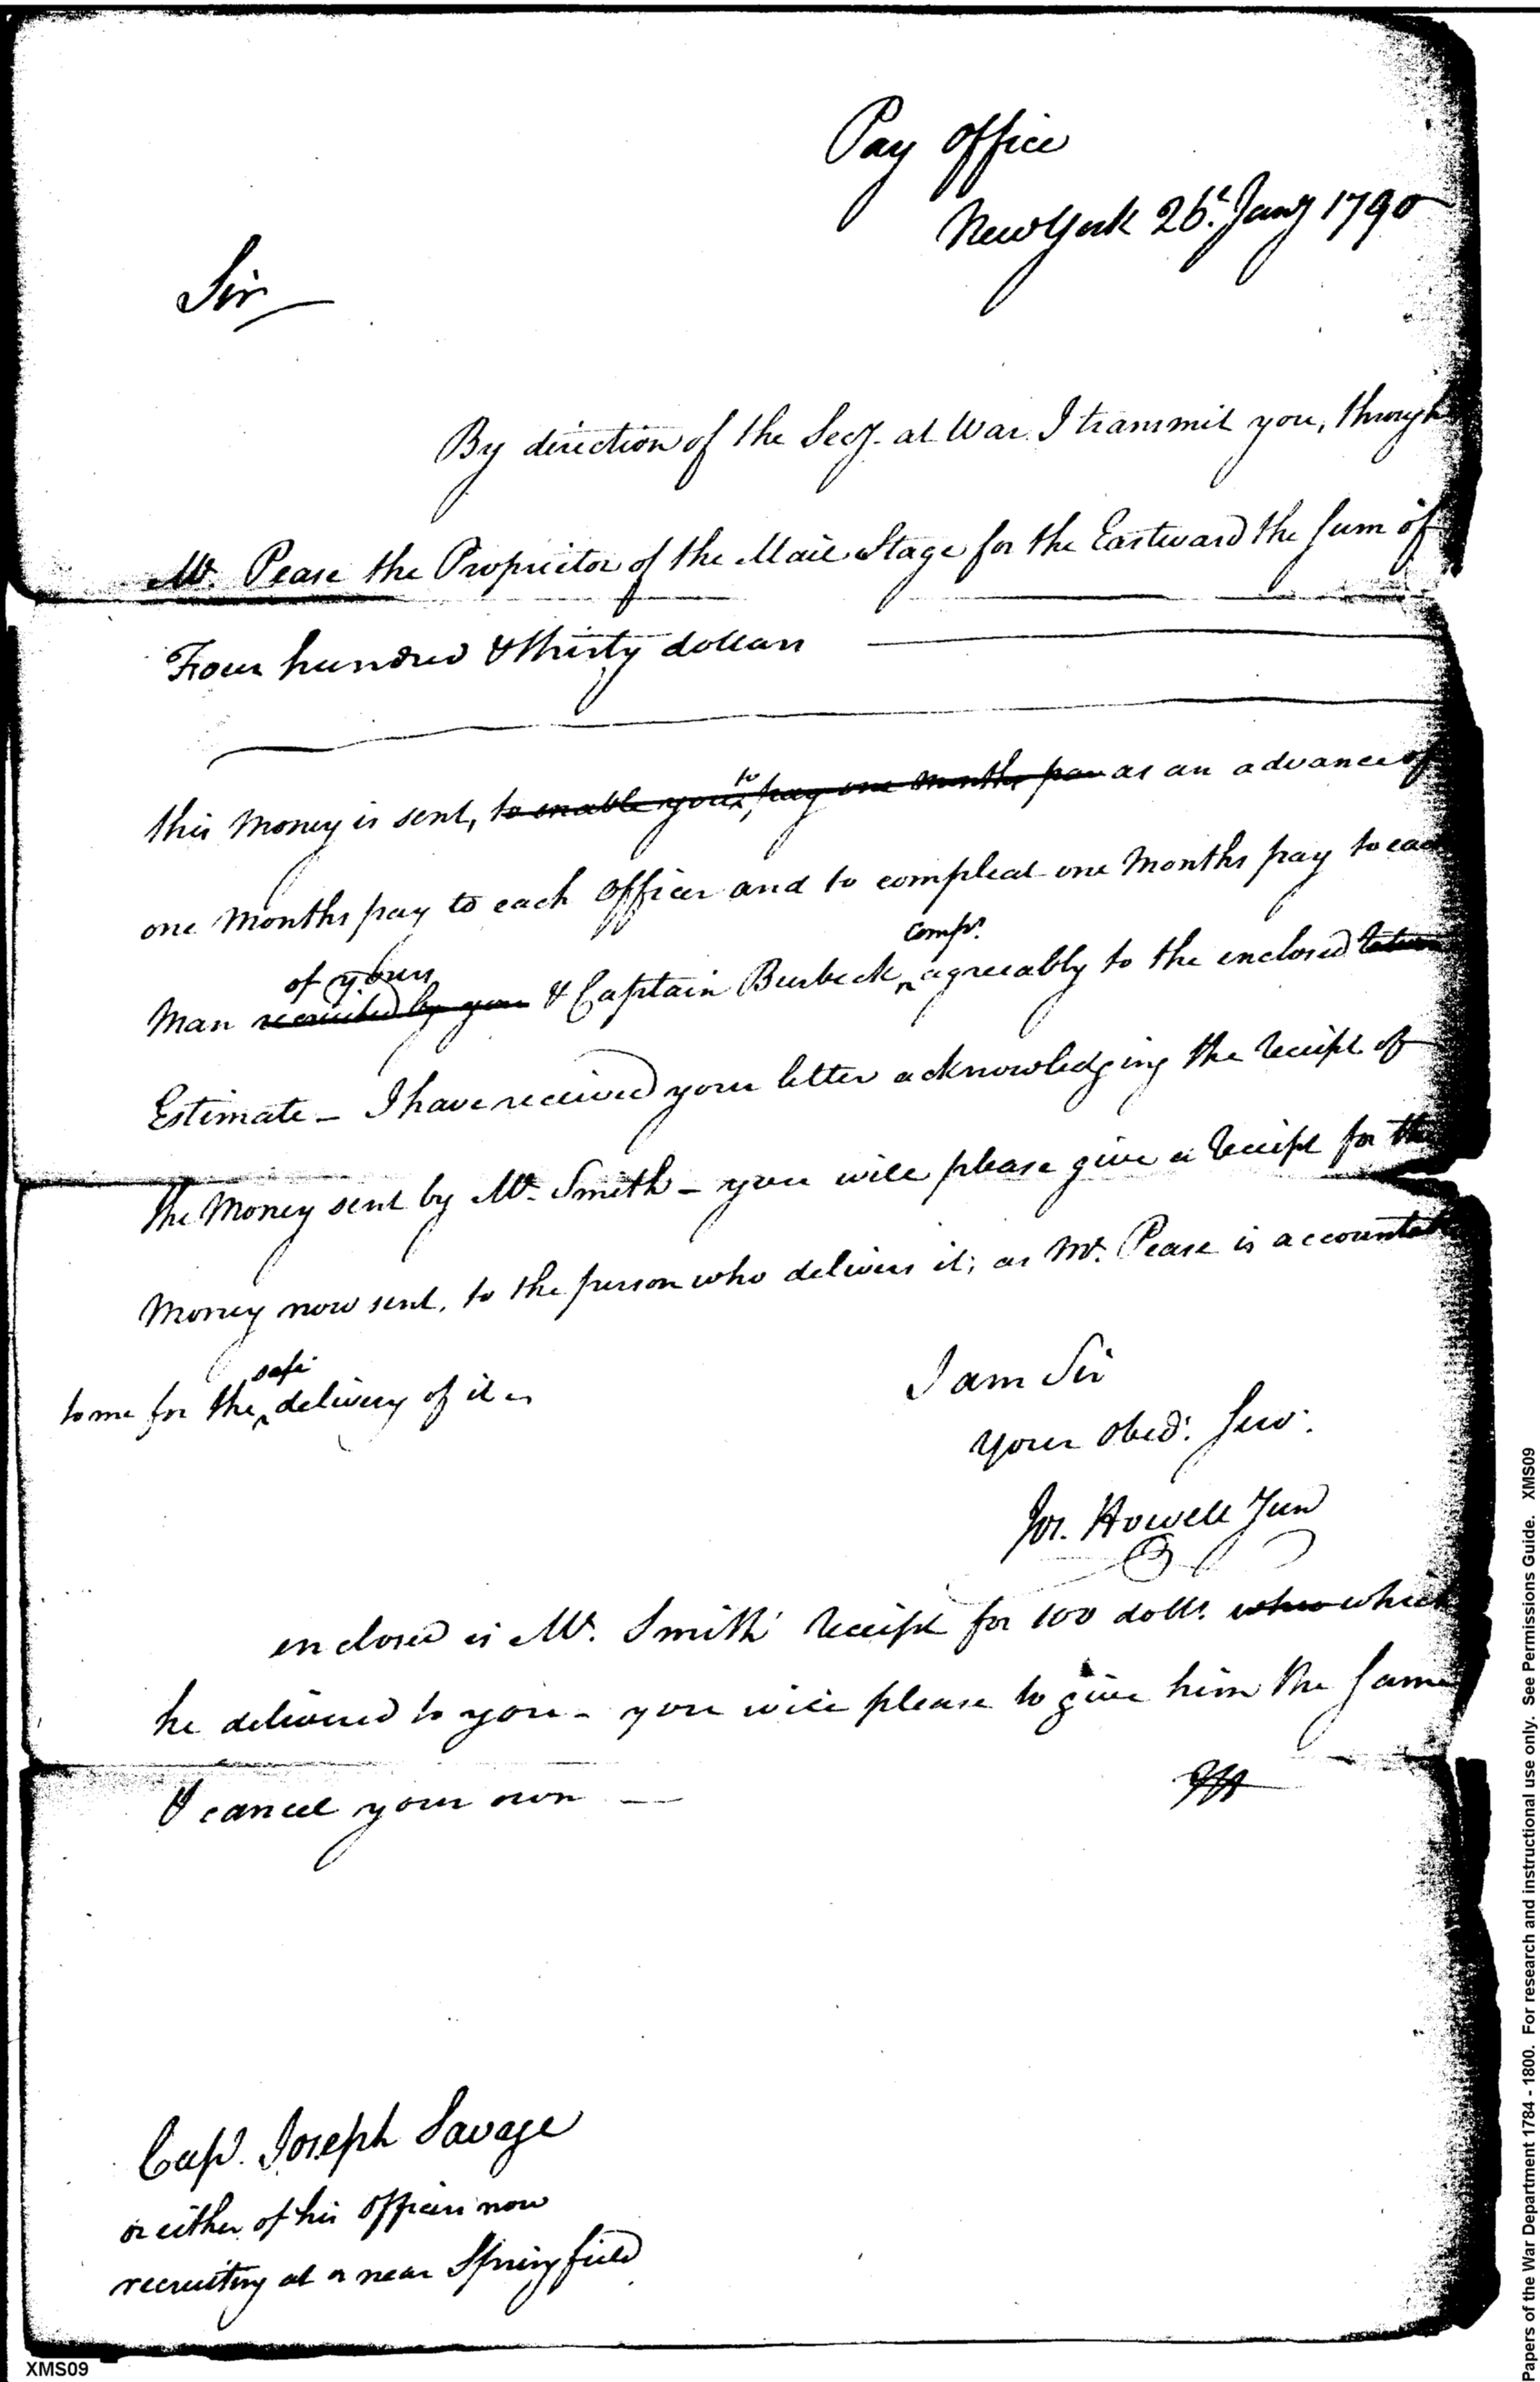 Pay Office
New York 26t. Jany 1790
Sir
By direction of the Secy. at War I transmit you, through
Mr. Pease the Proprietor of the Mail Stage for the Eastward the Sum of
Four hundred & thirty dollars
this Money is sent, to enable you to pay one months pay as an advance of
one Months pay to each Officer and to compleat one Months pay to each
comps.
of yours
Man recruited by you & Captain Burbeck agreeably to the enclosed
Estimate - I have received your letter acknowledging the receipt of
the Money sent by Mr. Smith - you will please give a receipt for the
Money now sent, to the person who delivers it; as Mr. Pease is accountable
safe
to me for the delivery of it -
I am Sir
your Obedt. Serv.
Jos. Howell Jun
enclosed is Mr. Smith's receipt for 100 dolls. which
he delivered to you - you will please to give him the same
& cancel your own
Capt. Joseph Savage
or either of his Officers now
recruiting at or near Springfield
XMS09
Papers of the War Department 1784 - 1800. For research and instructional use only. See Permissions Guide. XMS09